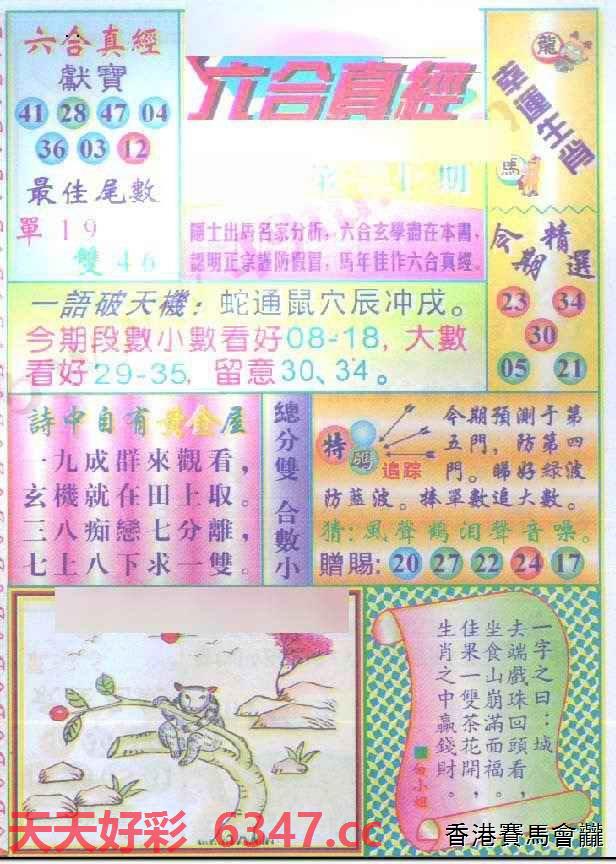 六合真經
獻寶
41 28 47 04
36 03 12
最佳尾數
單19
雙46
六合真經
期
龍
馬
幸運生肖
隱士出馬名家分析，六合玄學盡在本書，
認明正宗謹防假冒，馬年佳作六合真經。
今期精選
23 34
30
05 21
一語破天機：蛇通鼠穴辰冲戌。
今期段數小數看好08-18，大數
看好29-35，留意30、34。
詩中自有黃金屋
一九成群來觀看，
玄機就在田上取。
三八痴戀七分離，
七上八下求一雙。
總分雙 合數小
特碼
追踪
今期預測于第
五門，防第四
門。睇好綠波
防藍波。捧單數追大數。
猜：風聲鶴泪聲音嗓。
贈賜：20 27 22 24 17
一字之曰：城
去端戲珠回頭看，
坐食山崩滿而福。
佳果一雙茶花開，
生肖之中贏錢財。
白小姐
天天好彩 6347.cc
香港賽馬會